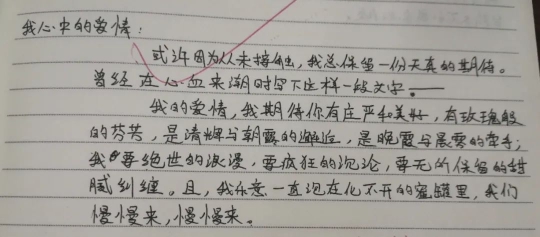 我心中的爱情：
或许因为从未接触，我总保留一份天真的期待。
曾经在心血来潮时写下这样一段文字。——
我的爱情，我期待你有庄严和美好，有玫瑰般
的芬芳，是清辉与朝露的邂逅，是晚霞与晨雾的牵手，
我要绝世的浪漫，要疯狂的沉沦，要无所保留的甜
腻纠缠。且，我任意一直泡在化不开的蜜罐里，我们
慢慢来，慢慢来。